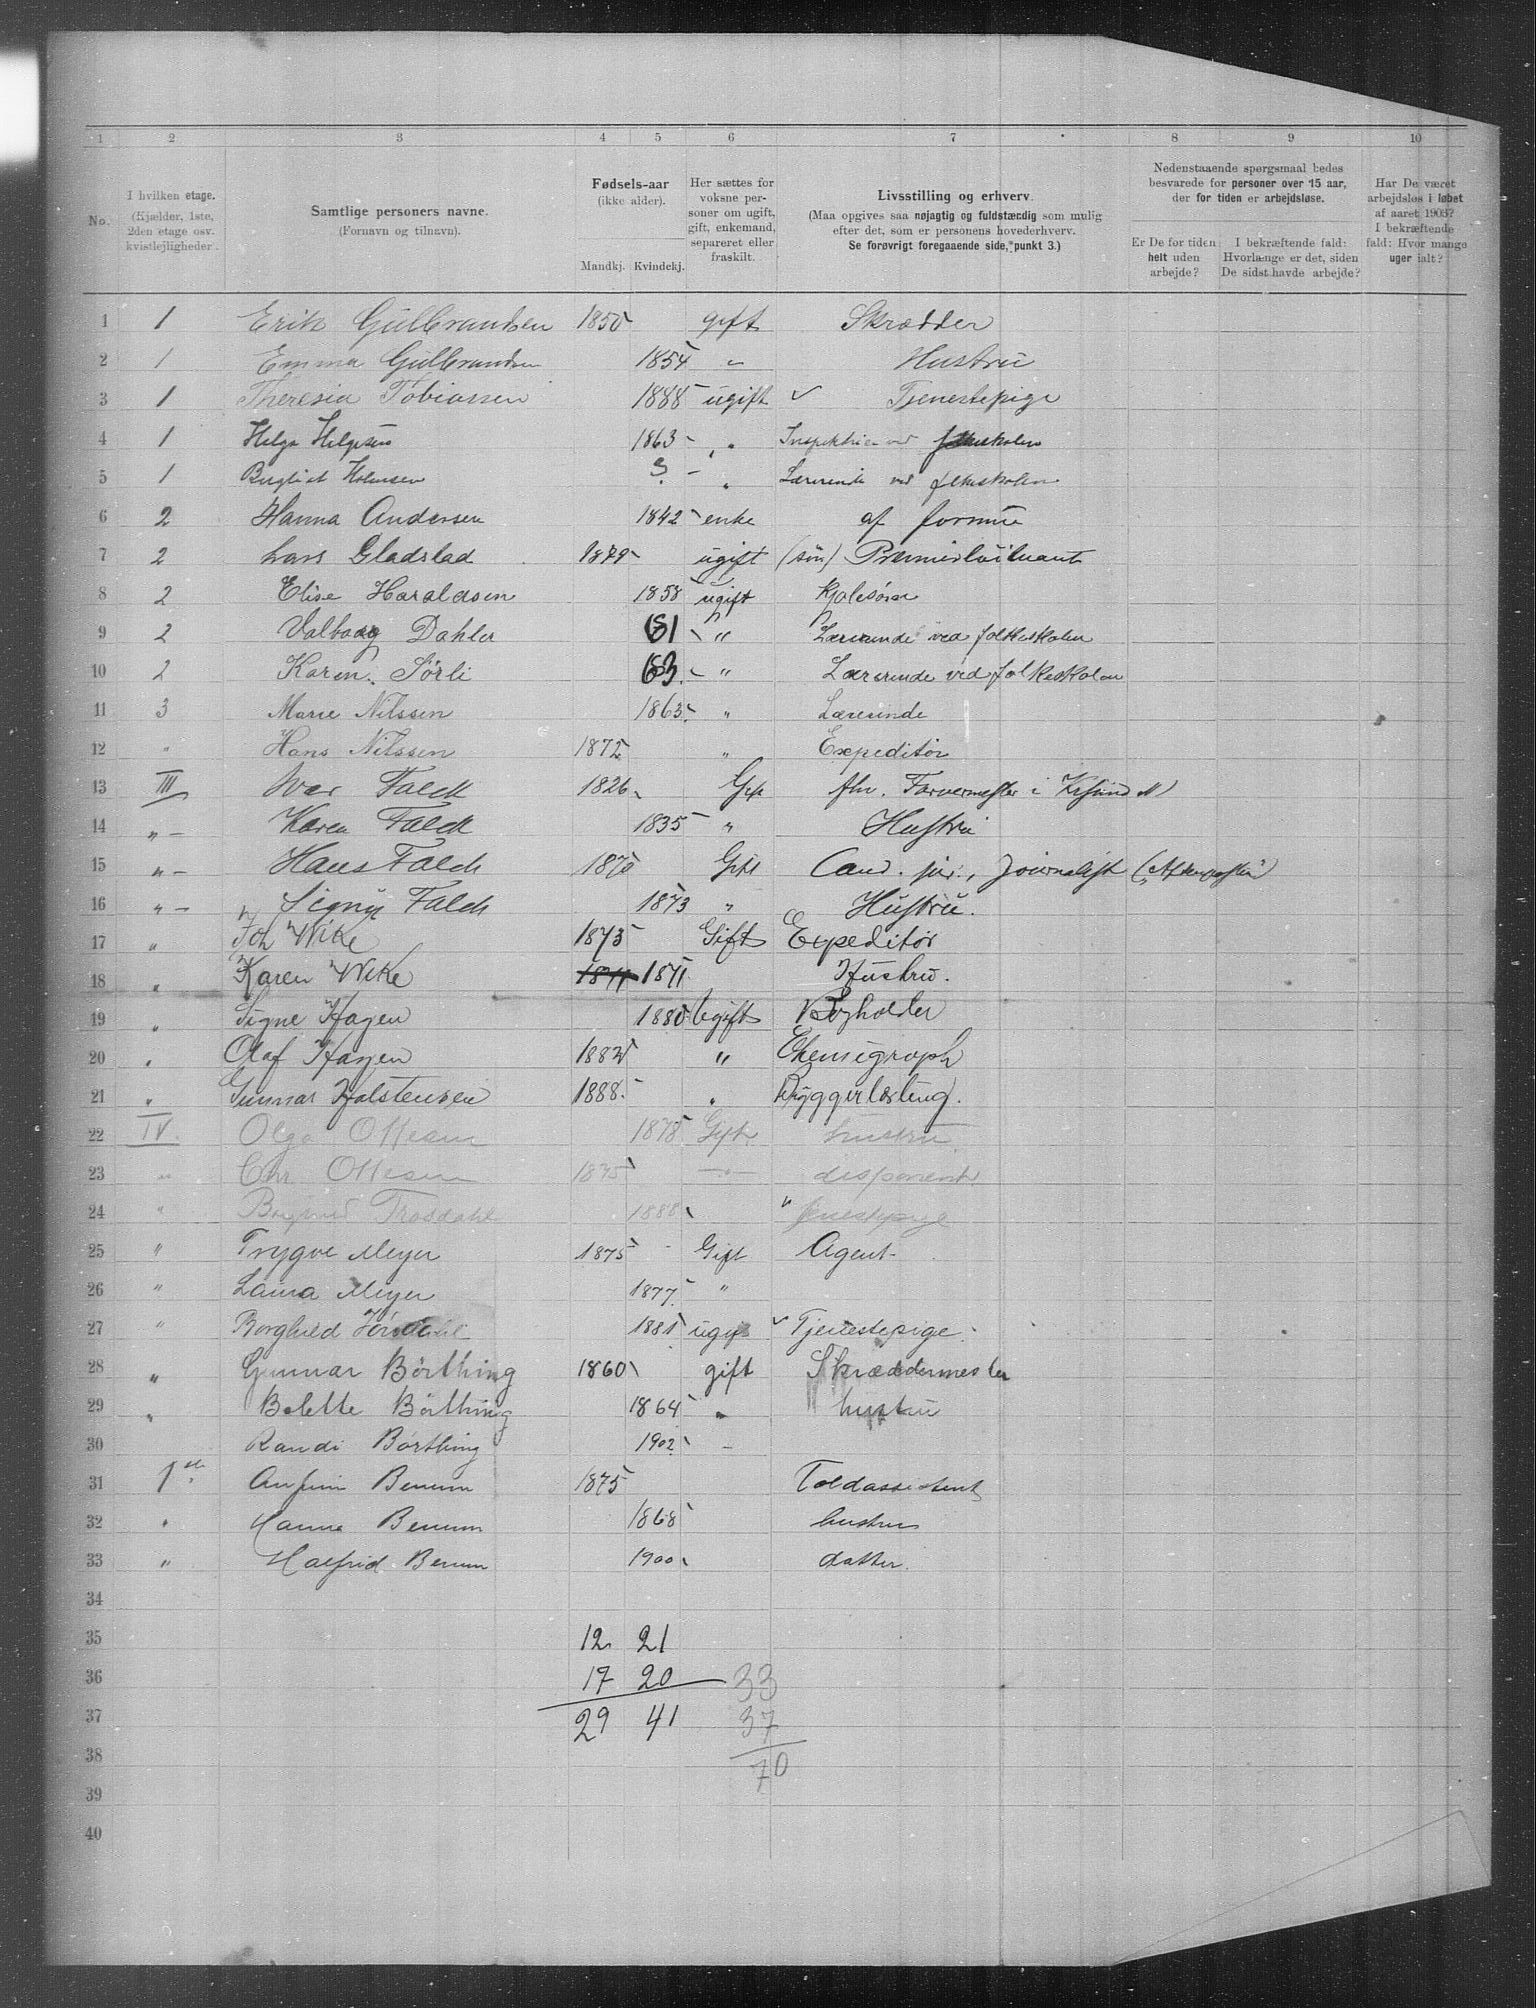 1 2 3 4 5 6 7 8 9 10
No.
I hvilken etage.
(Kjælder, 1ste, 2den etage osv. kvistlejligheder.)
Samtlige personers navne.
(Fornavn og tilnavn).
Fødsels-aar
(ikke alder).
Mandkj. Kvindekj.
Her sættes for voksne personer om ugift, gift, enkemand, separeret eller fraskilt.
Livsstilling og erhverv.
(Maa opgives saa nøjagtig og fuldstændig som mulig efter det, som er personens hovederhverv.
Se forøvrigt foregaaende side, punkt 3.)
Nedenstaaende spørgsmaal bedes besvarede for personer over 15 aar, der for tiden er arbejdsløse.
Er De for tiden helt uden arbejde?
I bekræftende fald: Hvorlænge er det, siden De sidst havde arbejde?
Har De været arbejdsløs i løbet af aaret 1903? I bekræftende fald: Hvor mange uger ialt?
1 1 Erik Gulbrandsen 1850 gift Skrædder
2 1 Emma Gulbrandsen 1854 " Hustru
3 1 Theresia Tobiassen 1888 ugift Tjenestepige
4 1 Helga Helgesen 1863 " Inspektrice ved folkeskolen
5 1 Holmsen ? " Lærerinde ved folkeskolen
6 2 Hanna Andersen 1842 enke af formue
7 2 Lars Gladstad 1879 ugift (søn) Premierløitnant
8 2 Elise Haraldsen 1858 ugift Kjolesøm
9 2 Valborg Dahler 61 " Lærerinde ved folkeskolen
10 2 Karen Sørli 63 " Lærerinde ved folkeskolen
11 3 Marie Nilssen 1863 " Lærerinde
12 " Hans Nilssen 1872 " Expeditør
13 III Iver Falck 1826 Gift fhv. Farvermester i Krsund N
14 " Karen Falck 1835 " Hustru
15 " Hans Falck 1870 Gift Cand. jur., Journalist (Aftenposten)
16 " Signy Falck 1873 " Hustru.
17 " Joh Wike 1873 Gift Expeditør
18 " Karen Wike 1871 1871 Hustru.
19 " Signe Hagen 1880 Ugift Bogholder
20 " Olaf Hagen 1882 " Chemigraph
21 " Gunnar Holstensen 1888 " Bryggerlærling.
22 IV Olga Ottesen 1878 Gift hustru
23 " Chr. Ottesen 1875 " disponent
24 " Trosdahl 1888 " tjenestepige
25 " Trygve Meyer 1875 Gift Agent
26 " Laura Meyer 1877 "
27 " Borghild 1881 ugift Tjenestepige
28 " Gunnar Börthing 1860 gift Skræddermester
29 " Bolette Börthing 1864 " hustru
30 Randi Börthing 1902 "
31 1ste Benum 1875 Toldassistent
32 " Hanna Benum 1868 hustru
33 " Halfrid Benum 1900 datter.
34
35 12 21
36 17 20 33
37 29 41 37
38 70
39
40